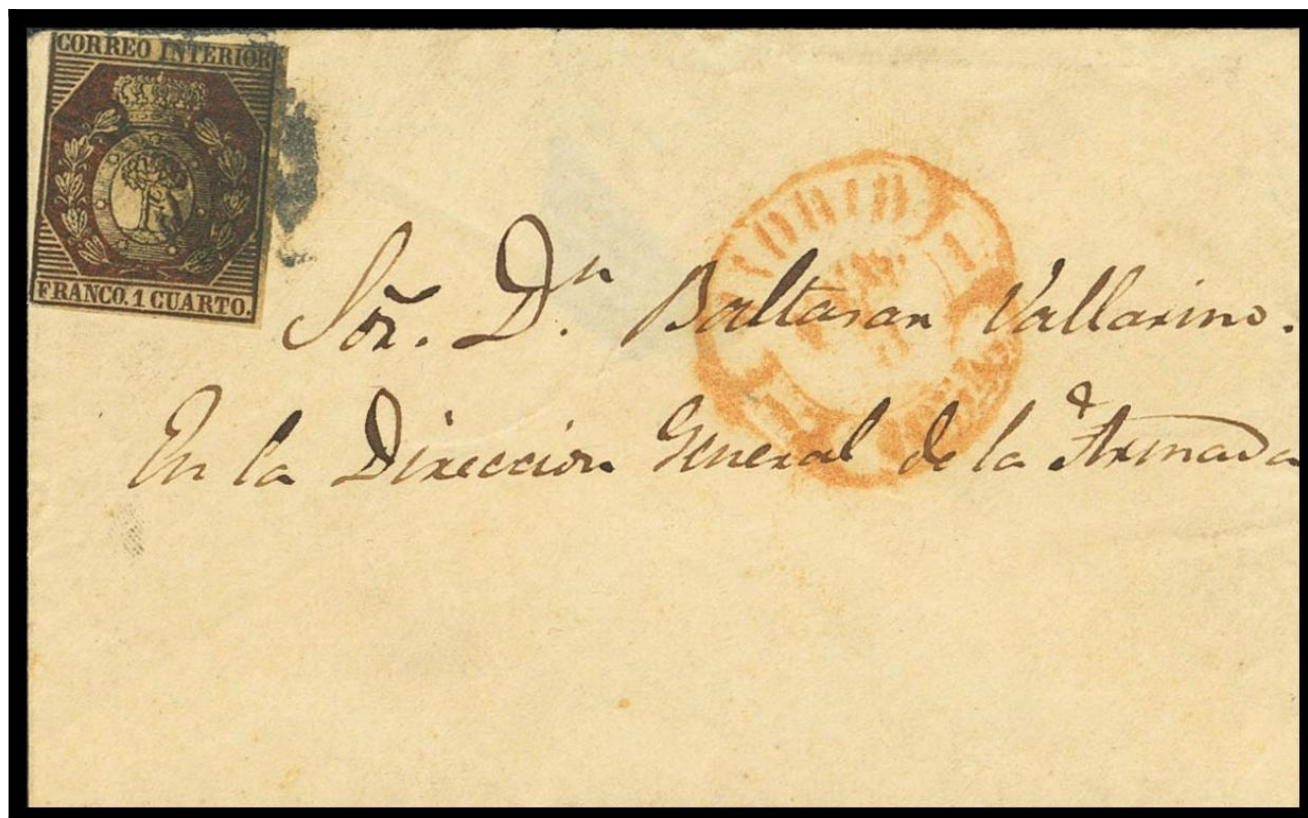 CORREO INTERIOR
FRANCO. 1 CUARTO.
Sor. Dn. Baltasar Vallarino.
En la Direccion General de la Armada